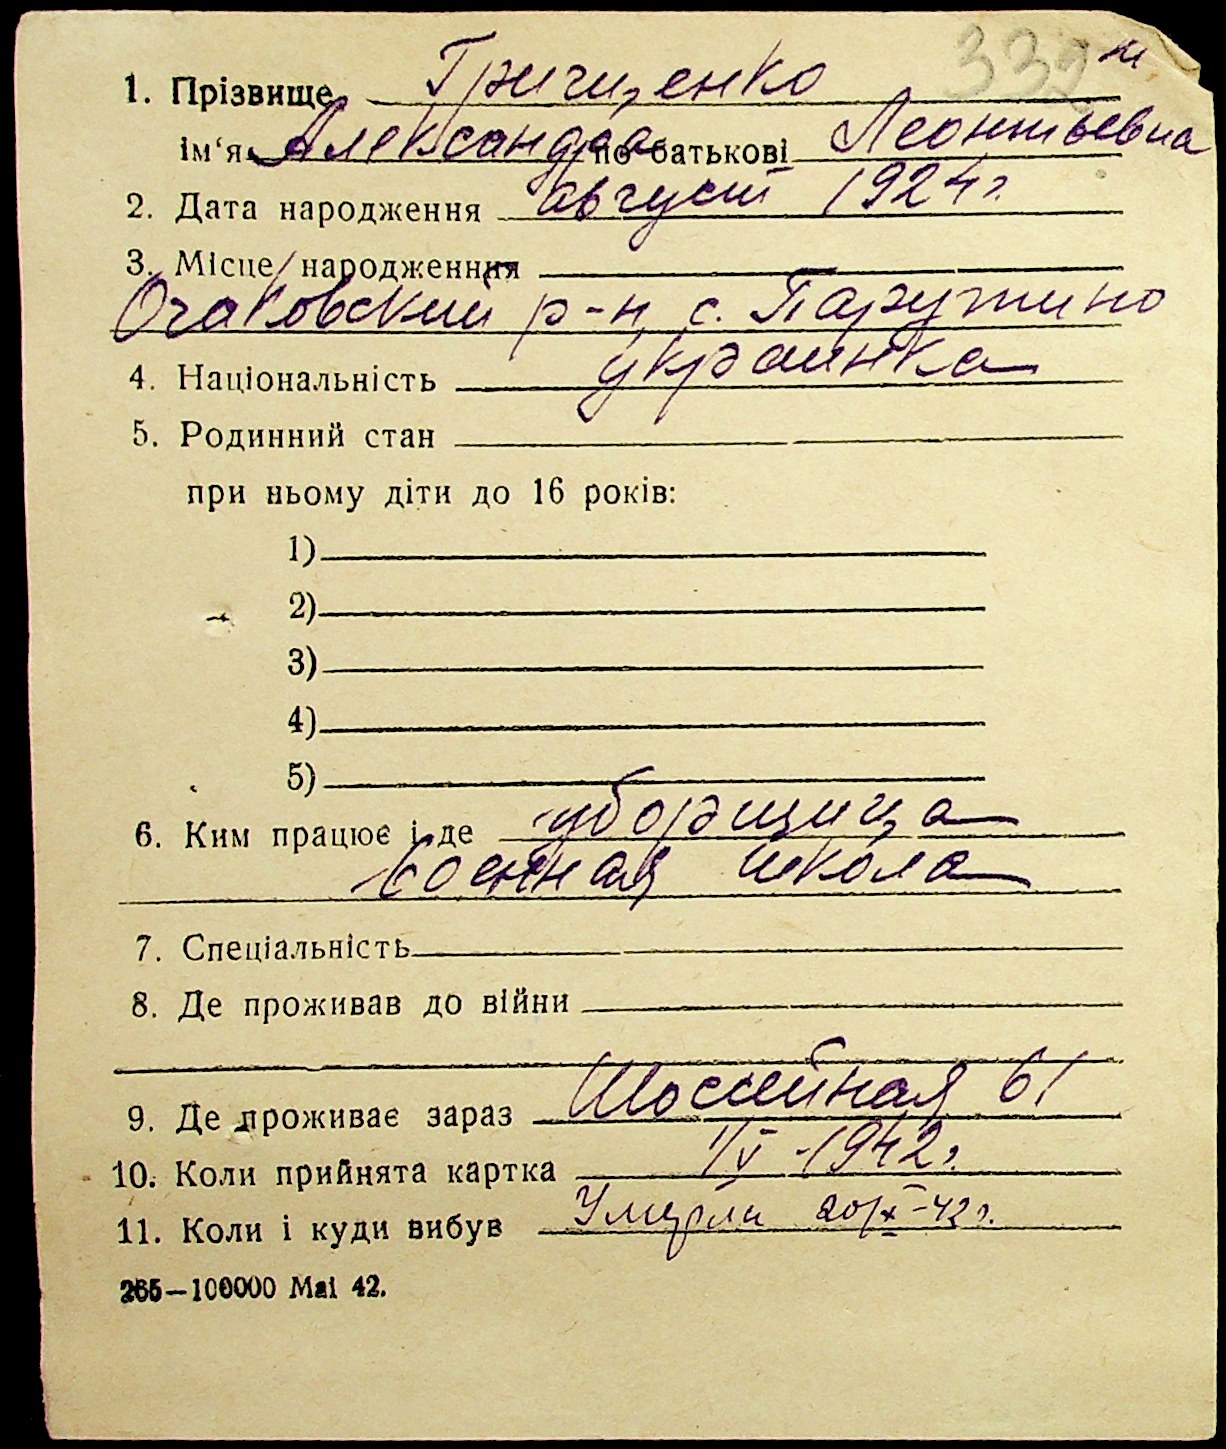 332 м
1. Прізвище Грищенко
ім‘я Александра по батькові Леонтьевна
2. Дата народження август 1924 г.
3. Місце народженння
Очаковский р-н, с. Парутино
4. Національність украинка
5. Родинний стан
при ньому діти до 16 років:
1)
2)
3)
4)
5)
6. Ким працює і де уборщица
военная школа
7. Спеціальність
8. Де проживав до війни
9. Де проживає зараз Шоссейная 61
10. Коли прийнята картка 1/V-1942 г.
11. Коли і куди вибув 20/X-42 г.
265—100000 Mai 42.